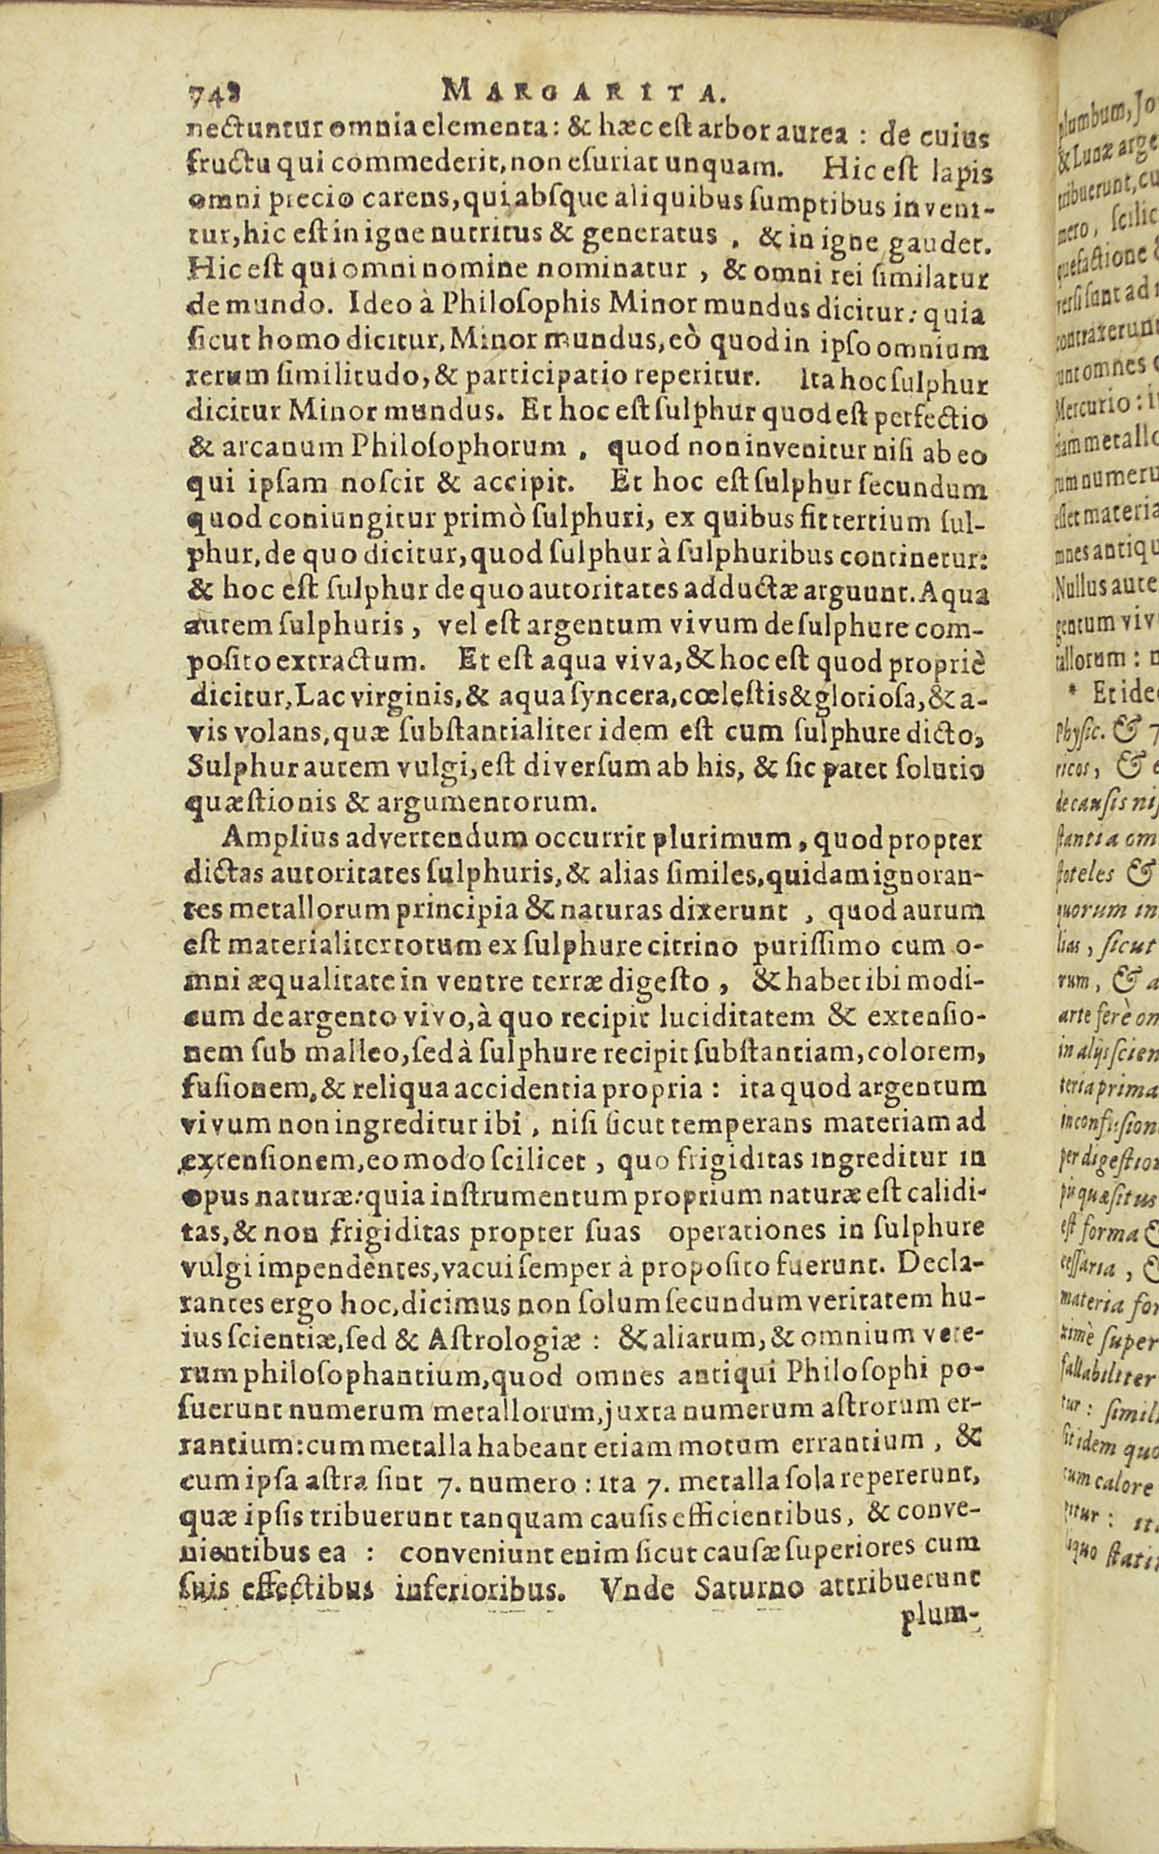 742 MARGARITA.
nectuntur omnia elementa: & hæc est arbor aurea : de cuius
fructu qui commederit, non esuriat unquam. Hic est lapis
omni precio carens, qui absque aliquibus sumptibus inveni-
tur, hic est in igne nutritus & generatus , & in igne gaudet.
Hic est qui omni nomine nominatur , & omni rei similatur
de mundo. Ideo à Philosophis Minor mundus dicitur: quia
sicut homo dicitur, Minor mundus, eò quod in ipso omnium
rerum similitudo, & participatio reperitur. Ita hoc sulphur
dicitur Minor mundus. Et hoc est sulphur quod est perfectio
& arcanum Philosophorum , quod non invenitur nisi ab eo
qui ipsam noscit & accipit. Et hoc est sulphur secundum
quod coniungitur primò sulphuri, ex quibus fit tertium sul-
phur, de quo dicitur, quod sulphur à sulphuribus continetur:
& hoc est sulphur de quo autoritates adductæ arguunt. Aqua
autem sulphuris , vel est argentum vivum de sulphure com-
posito extractum. Et est aqua viva, & hoc est quod propriè
dicitur, Lac virginis, & aqua syncera, cœlestis & gloriosa, & a-
vis volans, quæ substantialiter idem est cum sulphure dicto,
Sulphur autem vulgi, est diversum ab his, & sic patet solutio
quæstionis & argumentorum.
Amplius advertendum occurrit plurimum, quod propter
dictas autoritates sulphuris, & alias similes, quidam ignoran-
tes metallorum principia & naturas dixerunt , quod aurum
est materialiter totum ex sulphure citrino purissimo cum o-
mni æqualitate in ventre terræ digesto , & habet ibi modi-
cum de argento vivo, à quo recipit luciditatem & extensio-
nem sub malleo, sed à sulphure recipit substantiam, colorem,
fusionem, & reliqua accidentia propria : ita quod argentum
vivum non ingreditur ibi , nisi sicut temperans materiam ad
extensionem, eo modo scilicet , quo frigiditas ingreditur in
opus naturæ: quia instrumentum proprium naturæ est calidi-
tas, & non frigiditas propter suas operationes in sulphure
vulgi impendentes, vacui semper à proposito fuerunt. Decla-
rantes ergo hoc, dicimus non solum secundum veritatem hu-
ius scientiæ, sed & Astrologiæ : & aliarum, & omnium vete-
rum philosophantium, quod omnes antiqui Philosophi po-
suerunt numerum metallorum, juxta numerum astrorum er-
rantium: cum metalla habeant etiam motum errantium , &
cum ipsa astra sint 7. numero : ita 7. metalla sola repererunt,
quæ ipsis tribuerunt tanquam causis efficientibus, & conve-
nientibus ea : conveniunt enim sicut causæ superiores cum
suis effectibus inferioribus. Vnde Saturno attribuerunt
plum-
plumbum, Jo
& Lunæ arge
tribuerunt, cu
mero, scilic
quefactione &
versi sunt ad
contraxerunt
sunt omnes
Mercurio: i
metallo
rum numeru
esset materia
mnes antiqu
Nullus aute
gentum viv
tallorum : n
* Et ideo
Physic. & 7
ricos, & e
de causis nis
stantia om
stoteles &
quorum in
lias, sicut
rum, & a
arte ferè om
in aliis scien
teria prima
in confusion
per digestion
quæsitus
est forma &
cessaria, &
materia for
ximè super
fallabiliter
tur : simili
sit idem quo
cum calore
gitur : ita
liquo stati